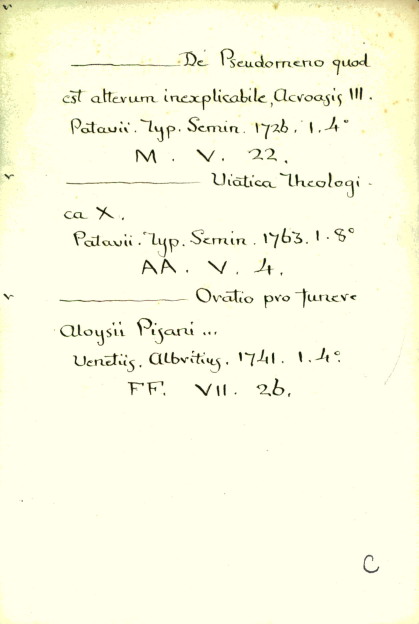 ——— De Pseudomeno quod
est alterum inexplicabile, Acroasis III.
Patavii. Typ. Semin. 1726. 1. 4°
M. V. 22.
——— Viatica Theologi-
ca X.
Patavii. Typ. Semin. 1763. 1. 8°
AA. V. 4.
——— Oratio pro funere
Aloysii Pisani ...
Venetiis. Albritius. 1741. 1. 4°.
FF. VII. 26.
C